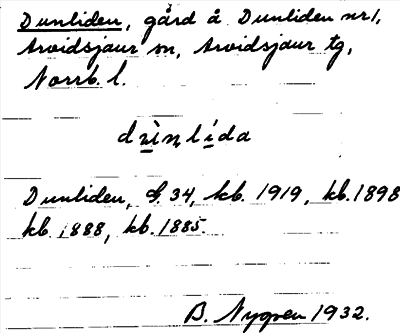 Dunliden, gård å Dunliden nr 1,
Arvidsjaur sn, Arvidsjaur tg,
Norrb. l.
Dunliden, S. 34, kb. 1919, kb. 1898
kb. 1888, kb. 1885.
B. Nygren 1932.